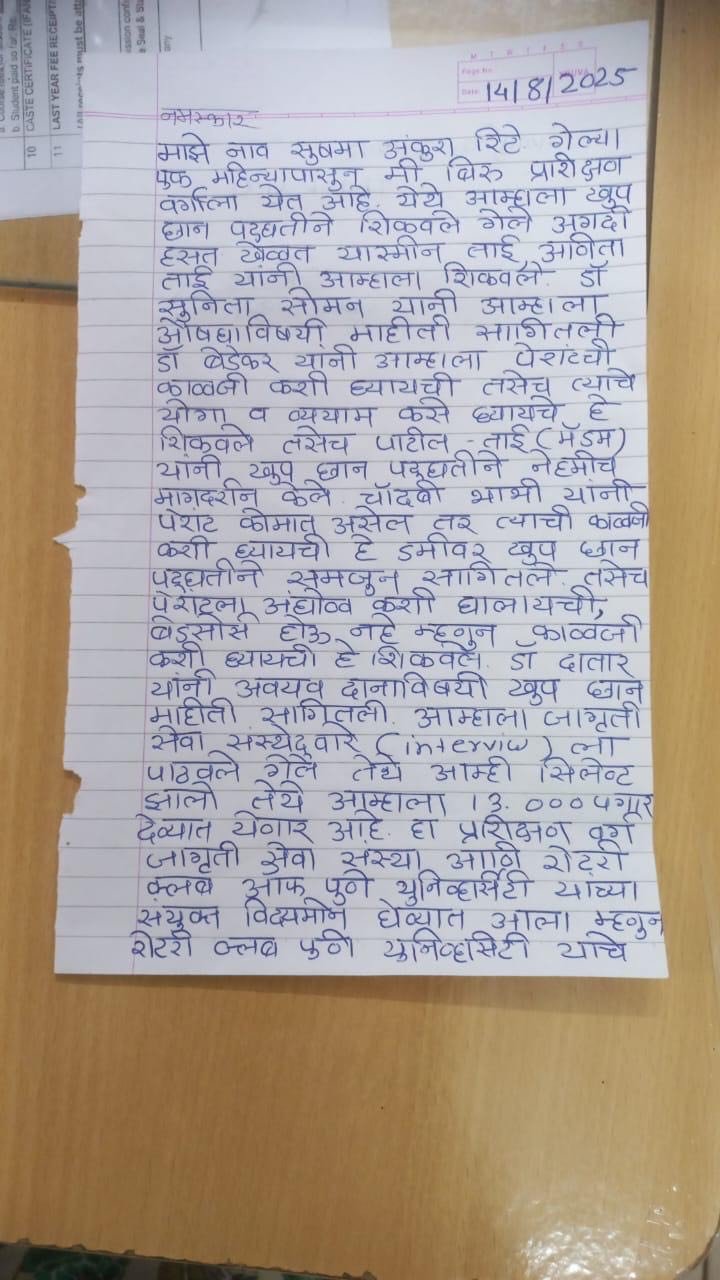 b. Student paid so far: Rs.
10 CASTE CERTIFICATE (IF AN
11 LAST YEAR FEE RECEIPT
must be atta
ession conf
any
M T W T F S S
Page No.
Date: 14/8/2025
YOUVA
नमस्कार
माझे नाव सुषमा अंकुश रिटे गेल्या
एक महिन्यापासुन मी ब्रिस प्रशिक्षण
वर्गाला येत आहे. येथे आम्हाला खुप
छान पद्धतीने शिकवले गेले अगदी
हसत खेळत यास्मीन ताई, अनिता
ताई यांनी आम्हाला शिकवले. डॉ
सुनिता सोमन यांनी आम्हाला
औषधाविषयी माहीती सांगितली
डॉ बेडेकर यांनी आम्हाला पेशंटची
काळजी कशी घ्यायची तसेच त्याचे
योगा व व्ययाम कसे घ्यायचे हे
शिकवले तसेच पाटील - ताई (मॅडम)
यांनी खुप छान पद्धतीने नेहमीच
मागदर्शन केले. चाँदबी भाभी यांनी
पेशंट कोमात असेल तर त्याची काळजी
कशी घ्यायची हे डमीवर खुप छान
पद्धतीने समजुन सांगितले. तसेच
पेशंटला अंघोळ कशी घालायची,
बेडसोर्स होऊ नहे म्हणुन काळजी
कशी घ्यायची हे शिकवले. डॉ दातार
यांनी अवयव दानाविषयी खुप छान
माहीती सांगितली. आम्हाला जागृती
सेवा संस्थेद्वारे (interviw) ला
पाठवले गेले तेथे आम्ही सिलेक्ट
झालो तेथे आम्हाला 13.000 पगार
देण्यात येणार आहे. हा प्रशिक्षण वर्ग
जागृती सेवा संस्था आणि रोटरी
क्लब ऑफ पुणे युनिव्हर्सिटी यांच्या
संयुक्त विद्यमाने घेण्यात आला म्हणुन
रोटरी क्लब पुणे युनिव्हर्सिटी यांचे